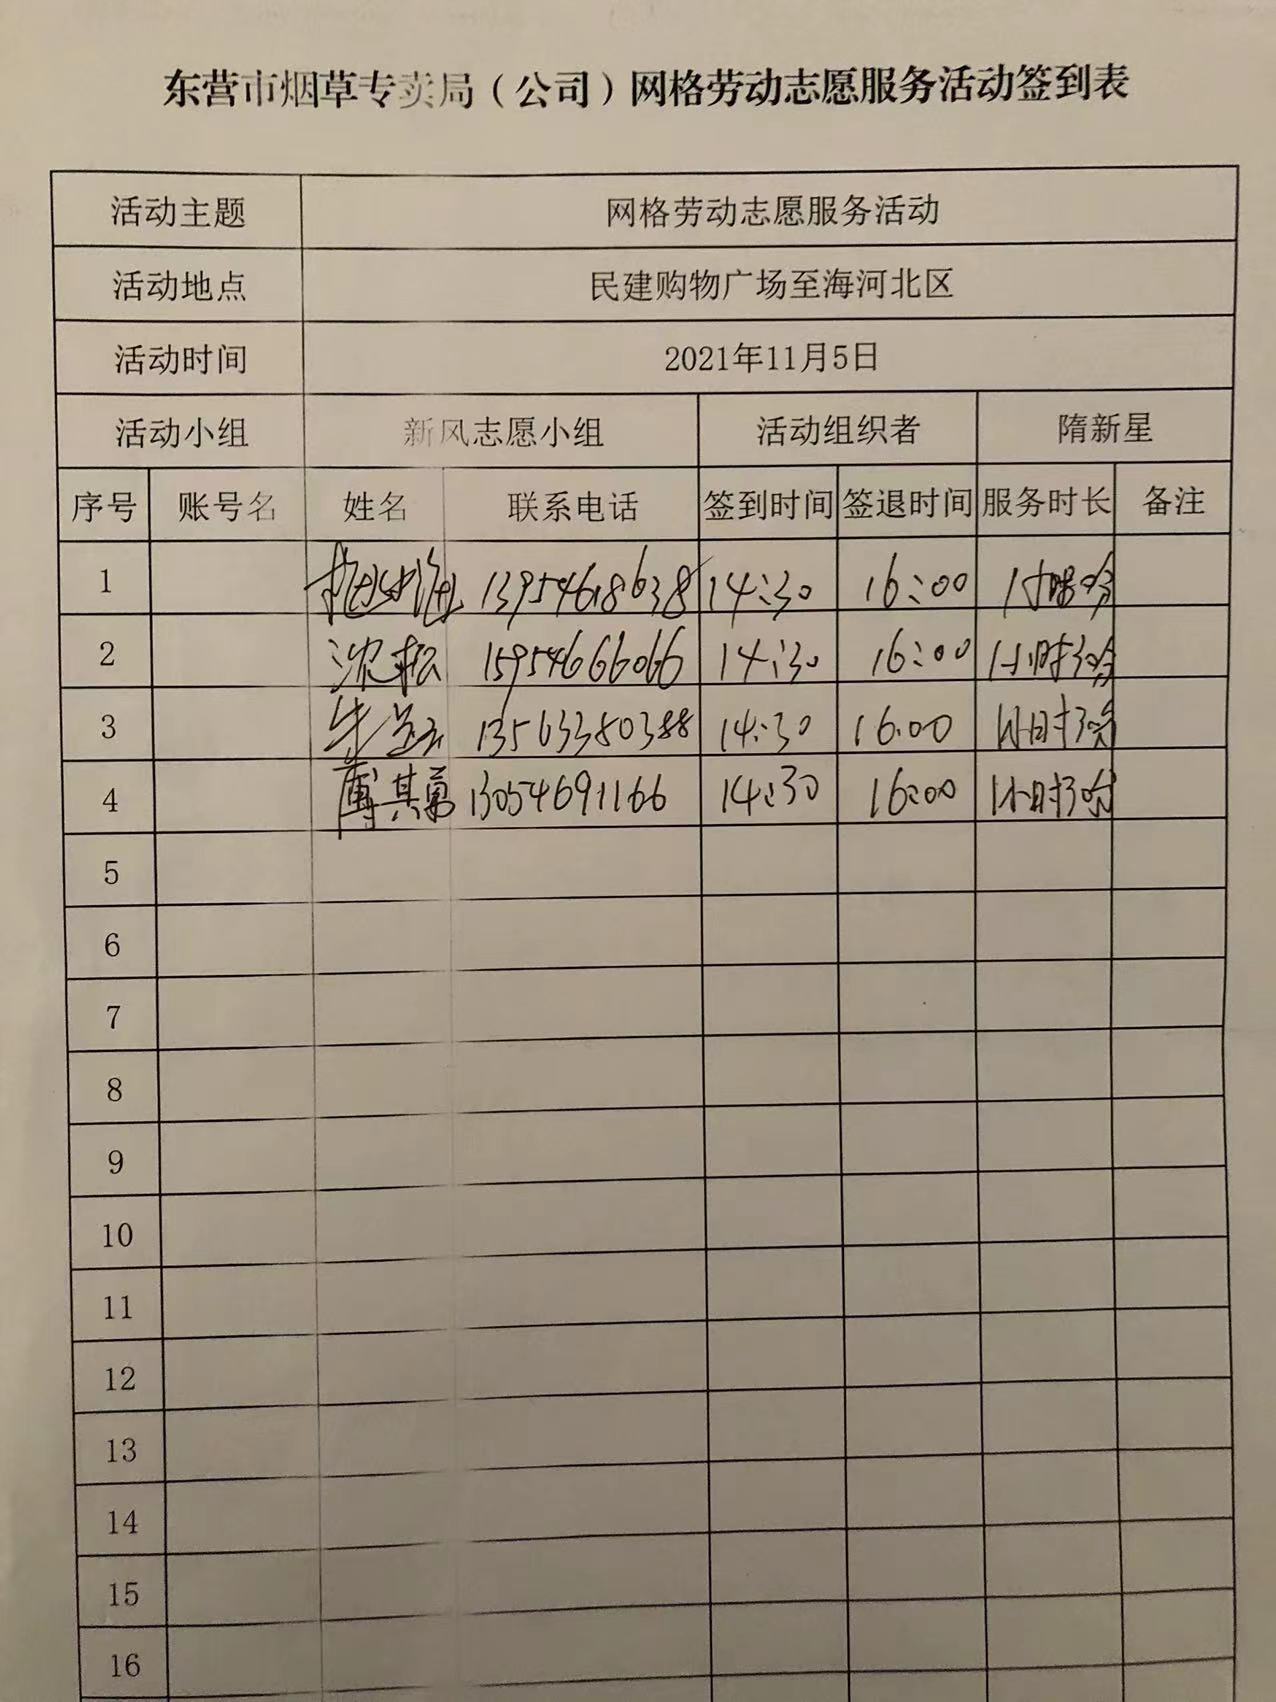 东营市烟草专卖局（公司）网格劳动志愿服务活动签到表
活动主题 网格劳动志愿服务活动
活动地点 民建购物广场至海河北区
活动时间 2021年11月5日
活动小组 新风志愿小组 活动组织者 隋新星
序号 账号名 姓名 联系电话 签到时间 签退时间 服务时长 备注
1 13954618638 14:30 16:00
2 沈松 15954666066 14:30 16:00 1小时30分
3 13563380388 14:30 16.00 1小时30分
4 傅其勇 13054691166 14:30 16:00 1小时30分
5
6
7
8
9
10
11
12
13
14
15
16